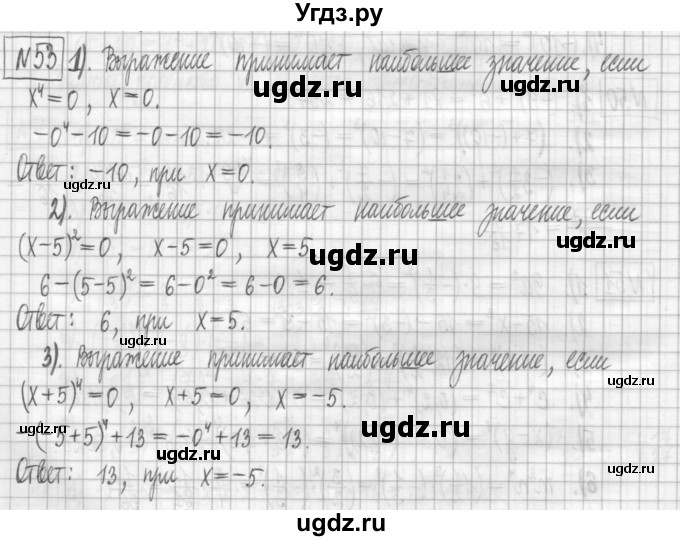 Угдз.ру
№53 1). Выражение принимает наибольшее значение, если
x⁴=0, x=0.
-0⁴-10=-0-10=-10.
Ответ: -10, при x=0.
2). Выражение принимает наибольшее значение, если
(x-5)²=0, x-5=0, x=5
6-(5-5)²=6-0²=6-0=6.
Ответ: 6, при x=5.
3). Выражение принимает наибольшее значение, если
(x+5)⁴=0, x+5=0, x=-5.
-(-5+5)⁴+13=-0⁴+13=13.
Ответ: 13, при x=-5.
ugdz.ru
ugdz.ru
ugdz.ru
ugdz.ru
ugdz.ru
ugdz.ru
ugdz.ru
ugdz.ru
ugdz.ru
ugdz.ru
ugdz.ru
ugdz.ru